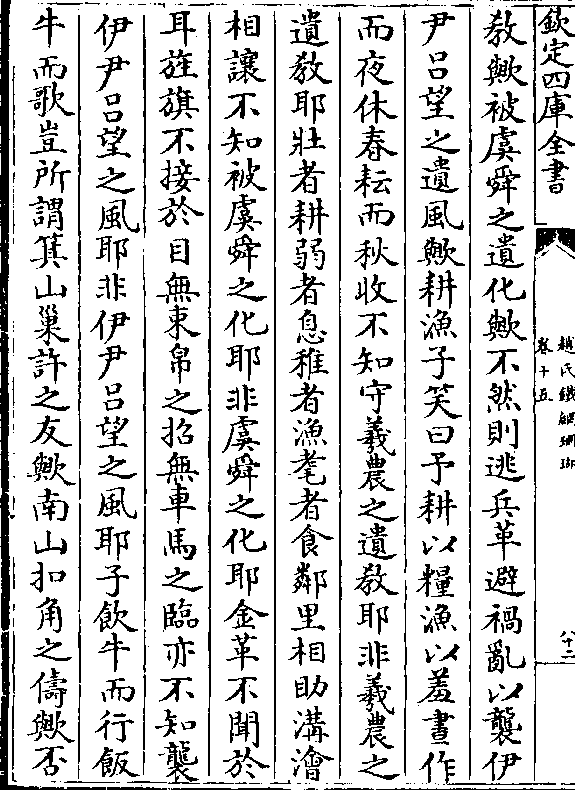 欽定四庫全書
趙氏鐵網珊瑚
卷十五
八十二
教歟被虞舜之遺化歟不然則逃兵革避禍亂以襲伊
尹吕望之遺風歟耕漁子笑曰予耕以糧漁以羞晝作
而夜休春耘而秋收不知守羲農之遺教耶非羲農之
遺教耶壯者耕弱者息稚者漁耄者食鄰里相助溝澮
相讓不知被虞舜之化耶非虞舜之化耶金革不聞於
耳旌旗不接於目無束帛之招無車馬之臨亦不知襲
伊尹吕望之風耶非伊尹吕望之風耶子飲牛而行飯
牛而歌豈所謂箕山巢許之友歟南山扣角之儔歟否